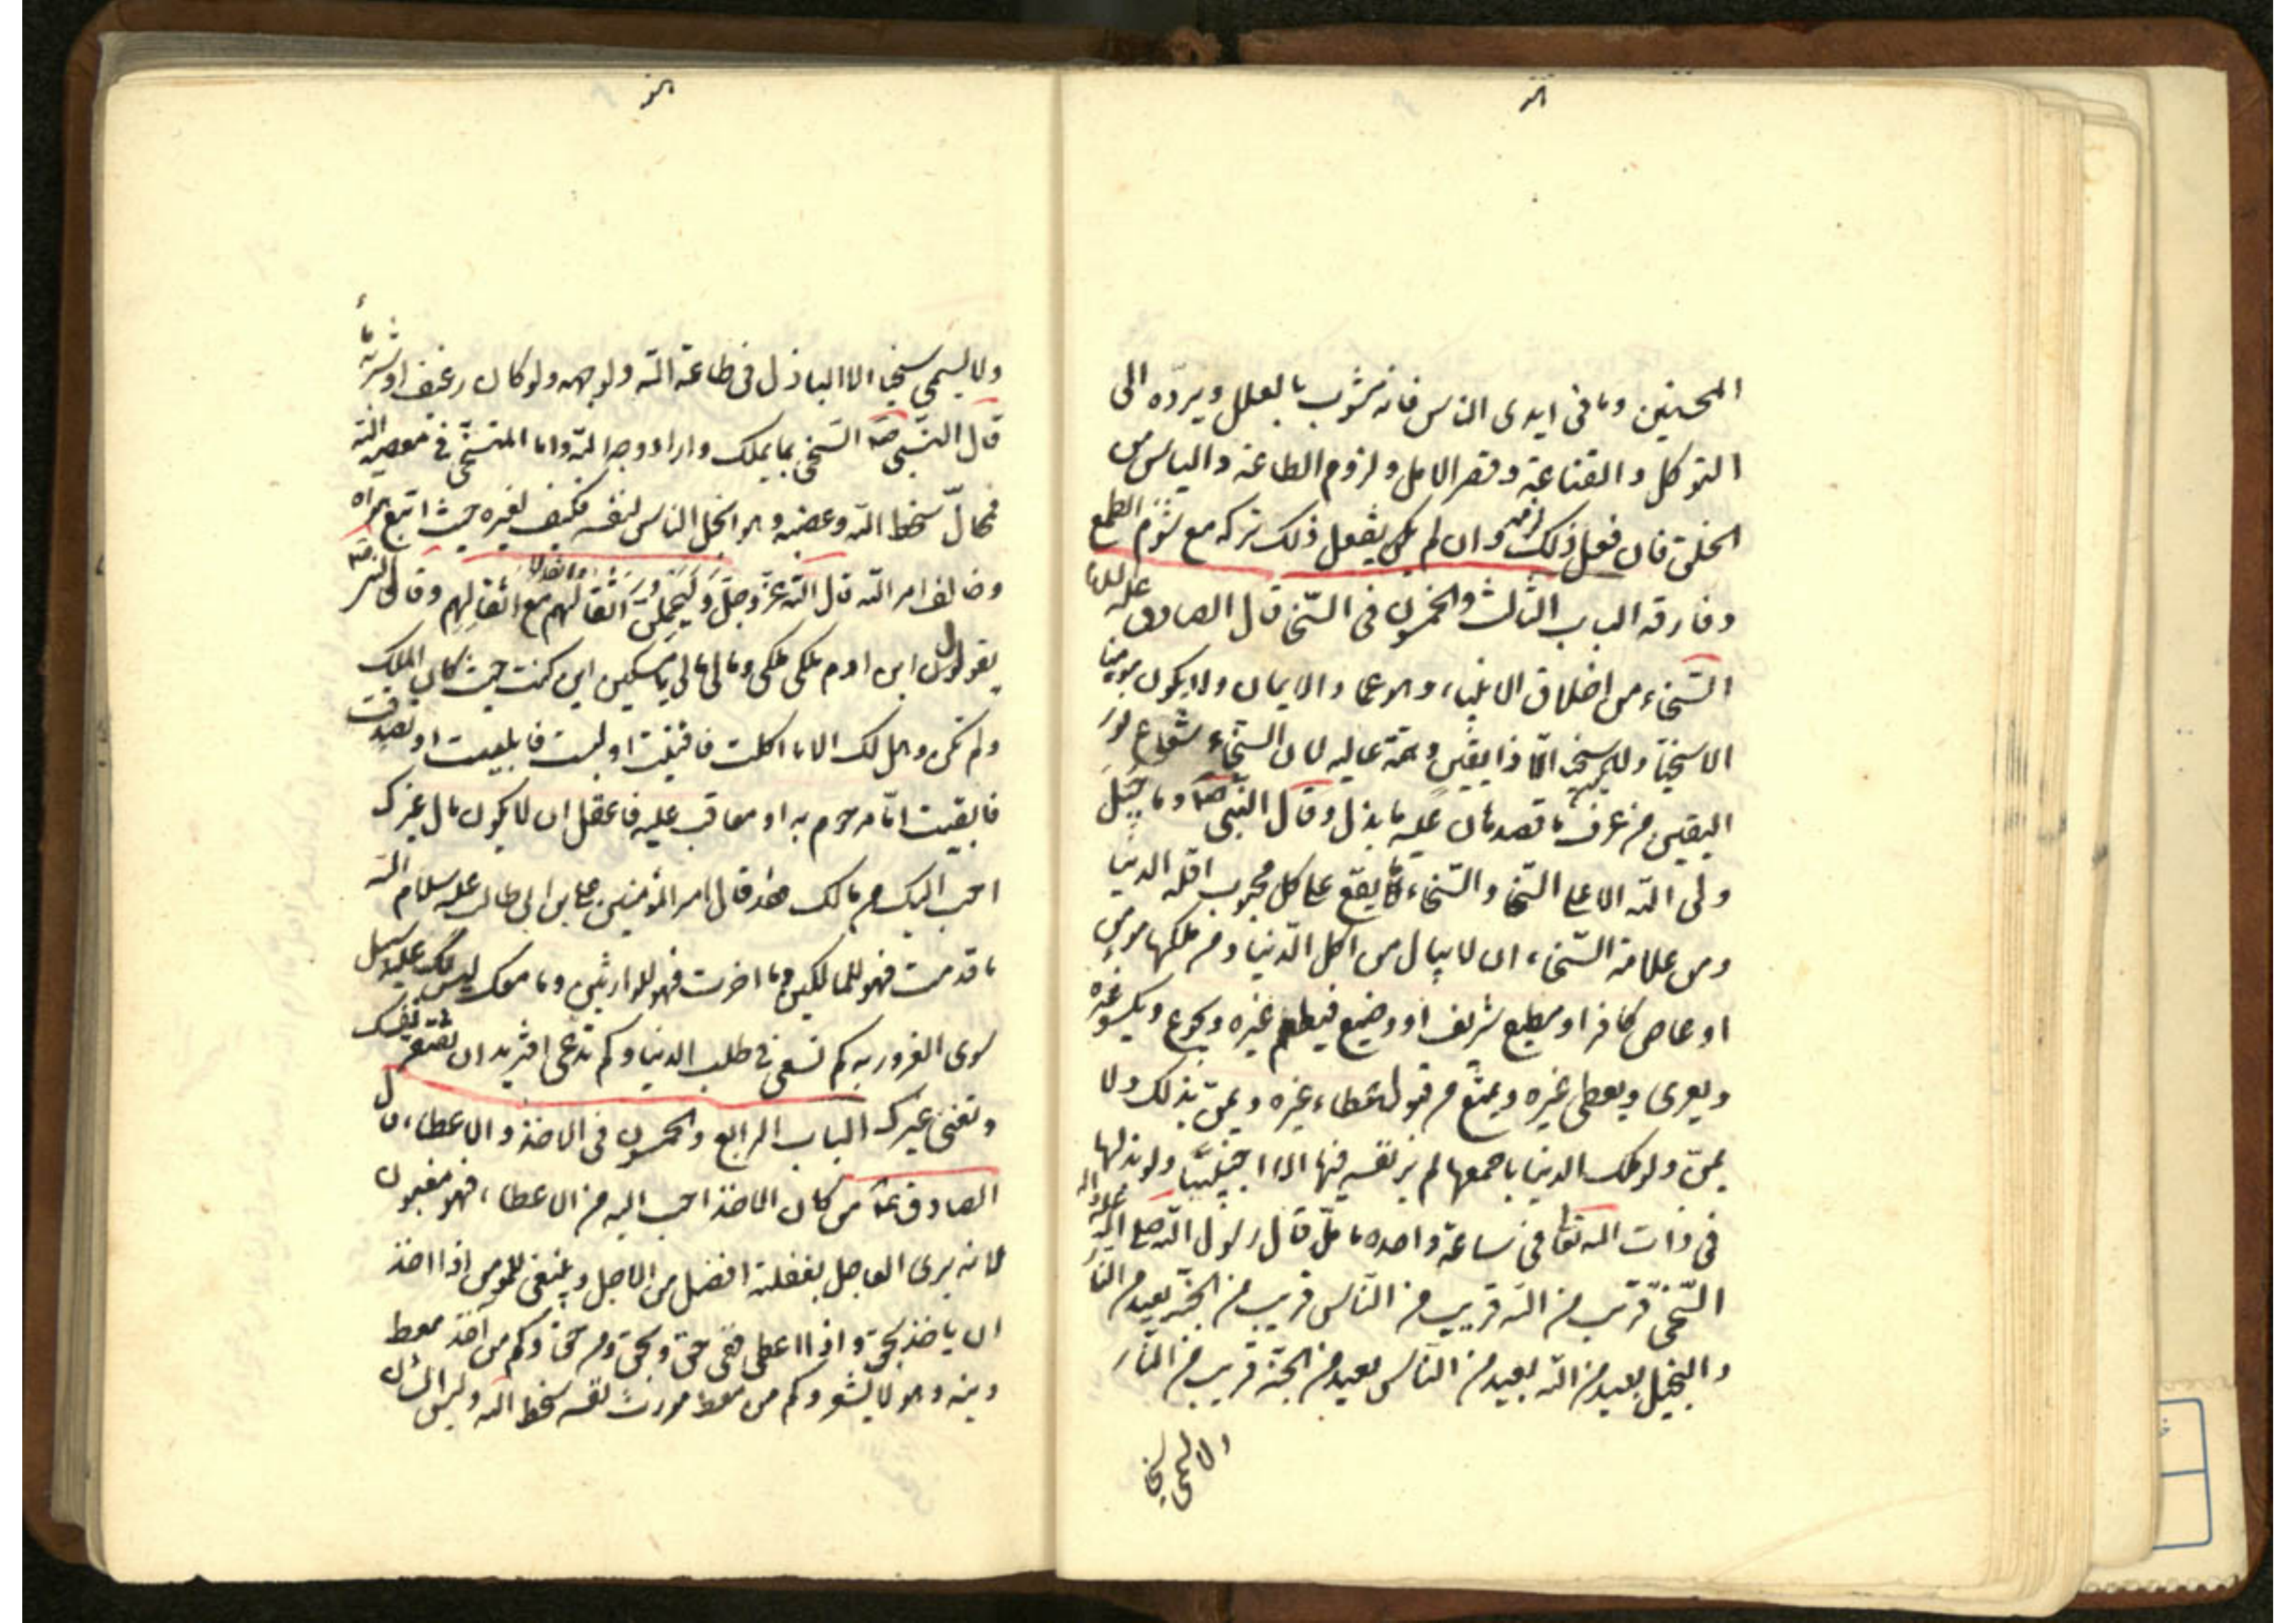 المحبتين وما فى ايدى الناس فانه مشوب بالعلل ويرده الى
التوكل والقناعة وقصر الامل ولزوم الطاعة والياس من
الخلق فان فعل ذلك لزمه وان لم يكن يفعل ذلك تركه مع شوم الطمع
وفارقه الباب الثالث والخمسون فى السّخا قال الصادق عليه السلام
السّخاء من اخلاق الانبياء وهو عماد الايمان ولا يكون مومنا
الا سخيا ولا يكون سخيا الا ذا يقين وهمة عاليه لان السّخاء شعاع نور
اليقين من عرف ما قصد هان عليه ما بذل وقال النّبى صم وما جبل
ولى اللّه الا على السّخا والسّخاء ما يقع على كل محبوب اقله الدنيا
ومن علامة السّخاء ان لا يبال من اكل الدّنيا ومن ملكها مومن
او عاص كافر او مطيع شريف او وضيع فيطعم غيره ويجوع ويكسو غيره
ويعرى ويعطى غيره ويمتنع من قبول عطاء غيره ويمن بذلك ولا
يمن ولو ملك الدنيا باجمعها لم ير نفسه فيها الا اجنبيّا ولو بذلها
فى ذات اللّه تعا فى ساعة واحده ما ملّ قال رسول اللّه صلى اللّه عليه واله
السّخىّ قريب من اللّه قريب من النّاس قريب من الجنّه بعيد من النّار
والبخيل بعيد من اللّه بعيد من النّاس بعيد من الجنّة قريب من النّار
ولا يسمى سخيا
ولا يسمى سخيا الا الباذل فى طاعة اللّه ولوجهه ولو كان رغيف او شربة ماء
قال النّبى صم السّخى بما يملك واراد وجه اللّه واما المتسخّى فى معصية اللّه
فحمّال سخط اللّه وغضبه وهو ابخل الناس لنفسه فكيف لغيره حيث اتبع هواه
وخالف امر اللّه قال اللّه عزّ وجلّ وَلَيَحْمِلُنَّ اَثْقالَهُم وَاَثْقالا مع اثقالهم وقال النبى صم
يقول اللّه ابن ادم ملكى ملكى ومالى مالى يا مسكين اين كنت حيث كان الملك
ولم تكن وهل لك الا ما اكلت فافنيت او لبست فابليت او تصدقت
فابقيت امّا مرحوم به او معاقب عليه فاعقل ان لا يكون مال غيرك
احب اليك من مالك فقد قال امير المؤمنين على بن ابى طالب عليه سلام اللّه
ما قدمت فهو للمالكين وما اخرت فهو للوارثين وما معك ليس لك عليه سبيل
سوى الغرور به كم تسعى فى طلب الدنيا وكم تدعى افتريد ان تفقر نفسك
وتغنى غيرك الباب الرابع والخمسون فى الاخذ والاعطاء قال
الصادق عم من كان الاخذ احب اليه من الاعطاء فهو مغبون
لانه يرى العاجل بغفلته افضل من الاجل وينبغى للمومن اذا اخذ
ان ياخذ بحق واذا اعطى ففى حق وبحق ومن حق وكم من آخذ معط
دينه وهو لا يشعر وكم من معط مورث نفسه سخط اللّه وليس الشان